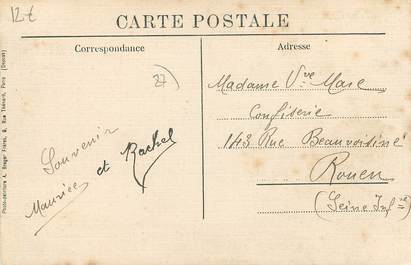 12t
CARTE POSTALE
Correspondance
Adresse
27)
Souvenir
Maurice et Rachel
Madame Vve Mare
Confiserie
143 Rue Beauvoisine
Rouen
(Seine Infre)
Photo-peinture A. Breger Frères, 9, Rue Thénard, Paris (Déposé)